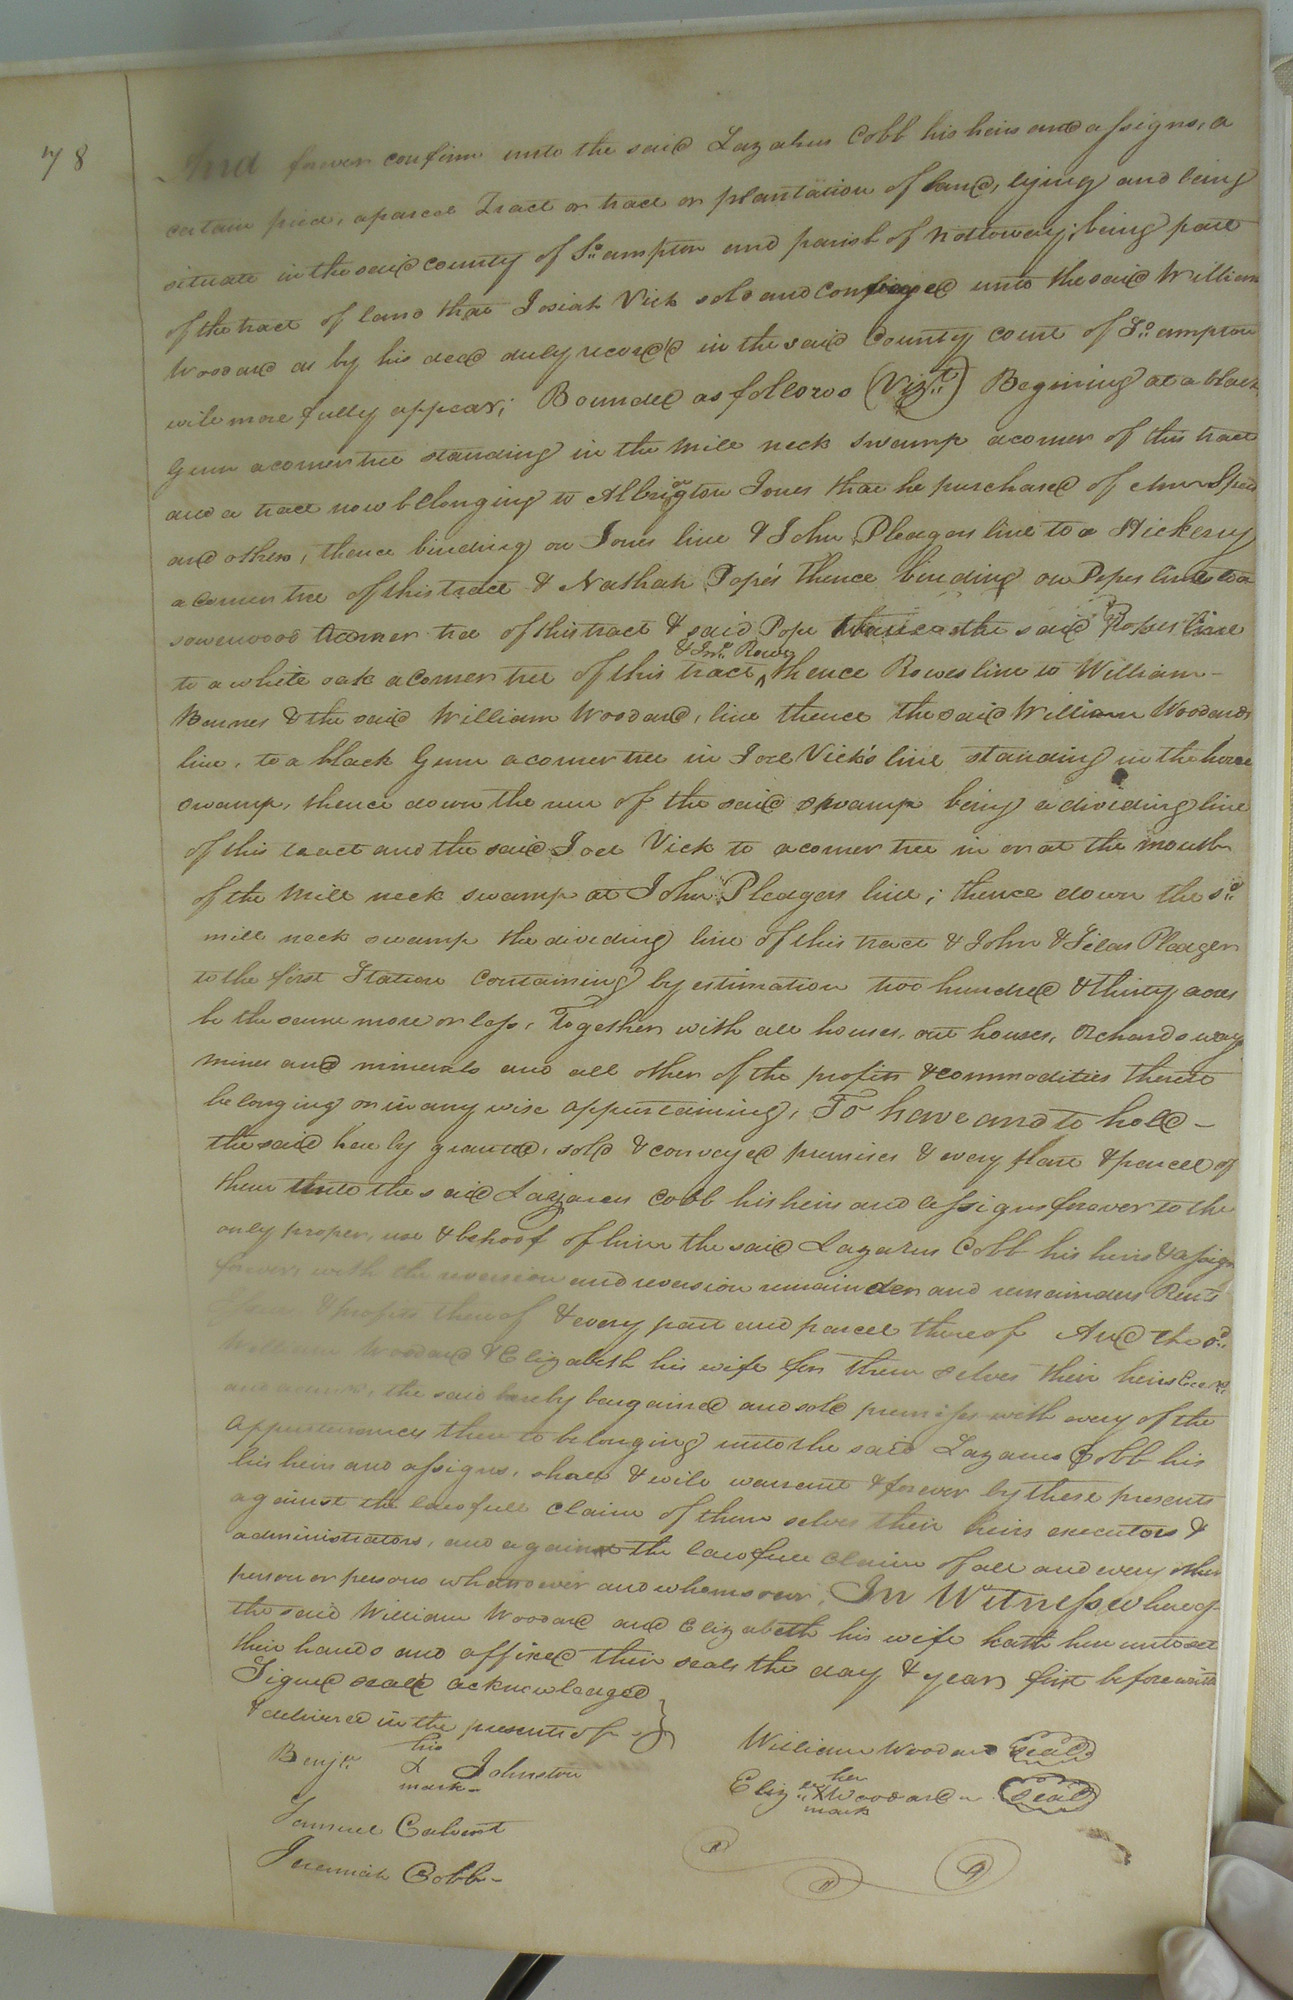 78
And forever confirm unto the said Lazarus Cobb his heirs and assigns, a
certain piece, a parcel Tract or tract or plantation of land, lying and being
situate in the said county of So:ampton and parish of Nottoway; being part
of the tract of land that Josiah Vick sold and conveyed unto the said William
Woodard as by his deed duly record'd in the said County Court of So:ampton
will more fully appear; Bounded as followo (Vizt:) Begining at a black
Gum a corner tree standing in the mill neck swamp a corner of this tract
and a tract now belonging to Albrigton Jones that he purchased of
and others, thence binding on Jones line & John Pledgers line to a Hickery
a corner tree of this tract & Nathan Pope's thence binding on Popes lines to a
sowerwood corner tree of this tract & said Pope thence the said Popes line
to a white oak a corner tree of this tract & Jno. Rowes thence Rowes line to William
Barnes & the said William Woodard, line thence the said William Woodards
line, to a black Gum a corner tree in Joel Vick's line standing in the horse
swamp, thence down the run of the said swamp being a dividing line
of this tract and the said Joel Vick to a corner tree in or at the mouth
of the Mill neck swamp at John Pledgers line; thence down the sd:
mill neck swamp the dividing line of this tract & John & Silas Pledger
to the first Station containing by estimation two hundred & thirty acres
be the same more or less, Together with all houses, out houses, Orchards ways
mines and minerals and all other of the profits & commodities thereto
belonging or in any wise appurtaining, To have and to hold
the said hereby granted, sold & conveyed premises & every part & parcel of
them unto the said Lazarus Cobb his heirs and assigns forever to the
only proper, use & behoof of him the said Lazarus Cobb his heirs & assigns
forever, with the reversion and reversion remainder and remainders Rents
& profits thereof & every part and parcel thereof And the sd:
William Woodard & Elizabeth his wife for them selves their heirs Exrs:
and admrs, the said hereby bargained and sold premisses with every of the
appurtenances thereto belonging unto the said Lazarus Cobb his
his heirs and assigns, shall & will warrant & forever by these presents
against the lawfull claim of them selves their heirs executors &
administrators, and against the lawfull claim of all and every other
person or persons whatsoever and whomsoever, In Witness whereof
the said William Woodard and Elizabeth his wife hath here unto set
their hands and affixed their seals the day & year first before writ
Signed seal'd acknowledged
& delivered in the presents of
Benjn: his X mark Johnston
William Woodard seal
Elizth: her X mark Woodard seal
Samuel Calvert
Jeremiah Cobb